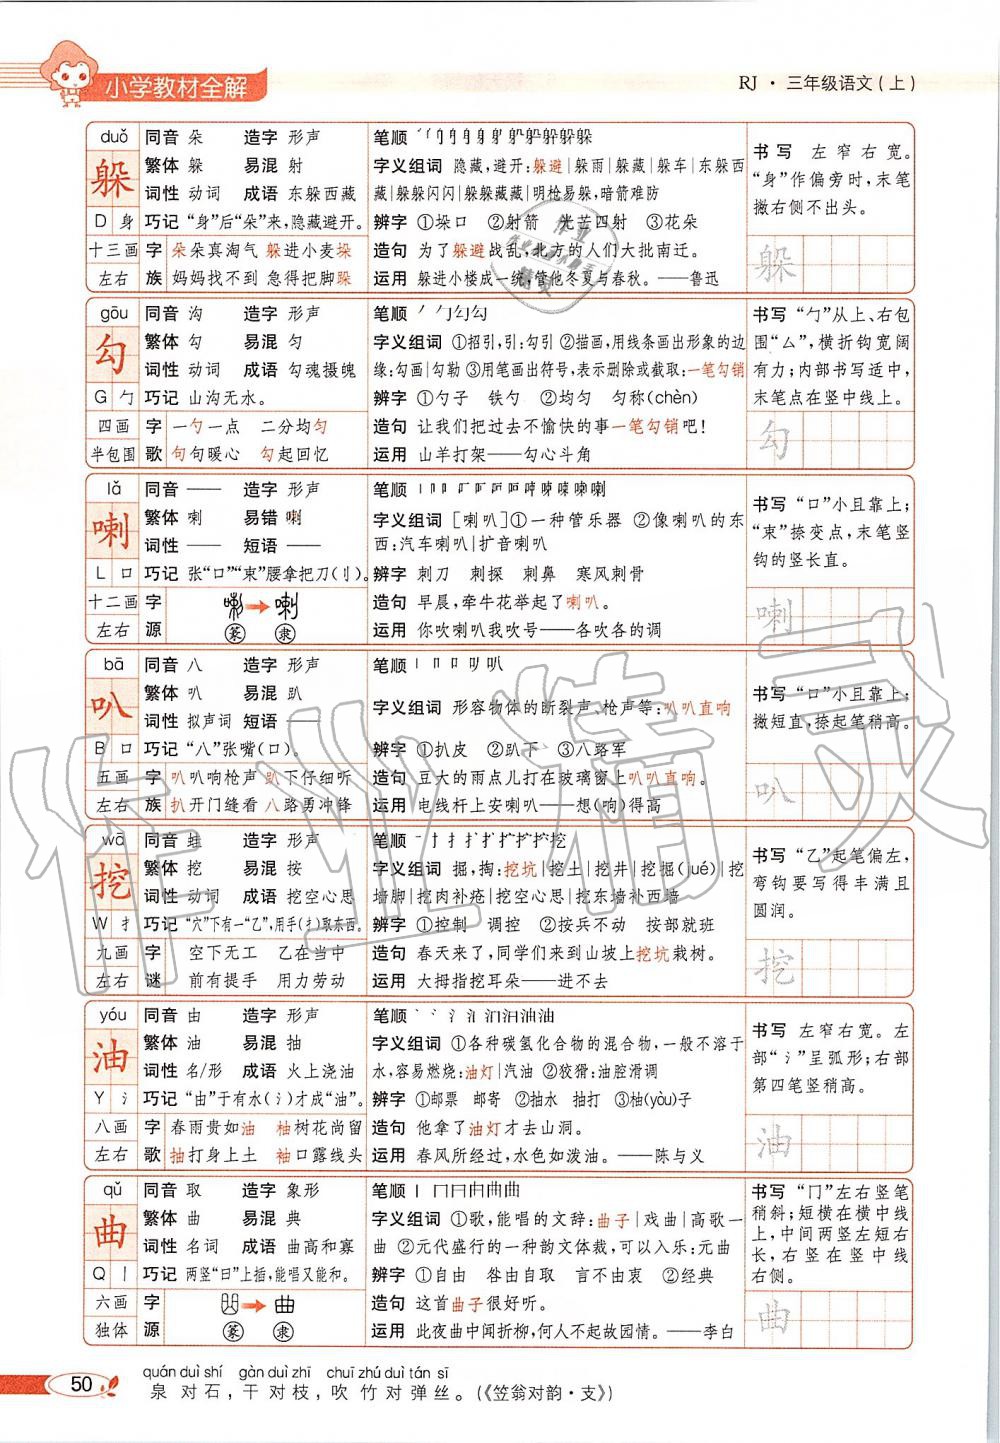 小学教材全解
RJ · 三年级语文（上）
duǒ
躲
D 身
十三画
左右
同音 朵 造字 形声
繁体 躲 易混 射
词性 动词 成语 东躲西藏
巧记 “身”后“朵”来，隐藏避开。
字族 朵朵真淘气 躲进小麦垛
妈妈找不到 急得把脚跺
笔顺
字义组词 隐藏，避开：躲避|躲雨|躲藏|躲车|东躲西
藏|躲躲闪闪|躲躲藏藏|明枪易躲，暗箭难防
辨字 ①垛口 ②射箭 光芒四射 ③花朵
造句 为了躲避战乱，北方的人们大批南迁。
运用 躲进小楼成一统，管他冬夏与春秋。——鲁迅
书写 左窄右宽。
“身”作偏旁时，末笔
撇右侧不出头。
躲
gōu
勾
G 勹
四画
半包围
同音 沟 造字 形声
繁体 勾 易混 匀
词性 动词 成语 勾魂摄魄
巧记 山沟无水。
字歌 一勺一点 二分均匀
句句暖心 勾起回忆
笔顺
字义组词 ①招引，引：勾引 ②描画，用线条画出形象的边
缘：勾画|勾勒 ③用笔画出符号，表示删除或截取：一笔勾销
辨字 ①勺子 铁勺 ②均匀 匀称(chèn)
造句 让我们把过去不愉快的事一笔勾销吧！
运用 山羊打架——勾心斗角
书写 “勹”从上、右包
围“厶”，横折钩宽阔
有力；内部书写适中，
末笔点在竖中线上。
勾
lǎ
喇
L 口
十二画
左右
同音 —— 造字 形声
繁体 喇 易错 喇
词性 —— 短语 ——
巧记 张“口”“束”腰拿把刀(刂)。
字源 喇→喇
篆 隶
笔顺
字义组词 [喇叭]①一种管乐器 ②像喇叭的东
西：汽车喇叭|扩音喇叭
辨字 刺刀 刺探 刺鼻 寒风刺骨
造句 早晨，牵牛花举起了喇叭。
运用 你吹喇叭我吹号——各吹各的调
书写 “口”小且靠上；
“束”捺变点，末笔竖
钩的竖长直。
喇
bā
叭
B 口
五画
左右
同音 八 造字 形声
繁体 叭 易混 趴
词性 拟声词 短语 ——
巧记 “八”张嘴(口)。
字族 叭叭响枪声 趴下仔细听
扒开门缝看 八路勇冲锋
笔顺
字义组词 形容物体的断裂声、枪声等：叭叭直响
辨字 ①扒皮 ②趴下 ③八路军
造句 豆大的雨点儿打在玻璃窗上叭叭直响。
运用 电线杆上安喇叭——想(响)得高
书写 “口”小且靠上；
撇短直，捺起笔稍高。
叭
wā
挖
W 扌
九画
左右
同音 蛙 造字 形声
繁体 挖 易混 按
词性 动词 成语 挖空心思
巧记 “穴”下有一“乙”，用手(扌)取东西。
字谜 空下无工 乙在当中
前有提手 用力劳动
笔顺
字义组词 掘，掏：挖坑|挖土|挖井|挖掘(jué)|挖
墙脚|挖肉补疮|挖空心思|挖东墙补西墙
辨字 ①控制 调控 ②按兵不动 按部就班
造句 春天来了，同学们来到山坡上挖坑栽树。
运用 大拇指挖耳朵——进不去
书写 “乙”起笔偏左，
弯钩要写得丰满且
圆润。
挖
yóu
油
Y 氵
八画
左右
同音 由 造字 形声
繁体 油 易混 抽
词性 名/形 成语 火上浇油
巧记 “由”于有水(氵)才成“油”。
字歌 春雨贵如油 柚树花尚留
抽打身上土 袖口露线头
笔顺
字义组词 ①各种碳氢化合物的混合物，一般不溶于
水，容易燃烧：油灯|汽油 ②狡猾：油腔滑调
辨字 ①邮票 邮寄 ②抽水 抽打 ③柚(yòu)子
造句 他拿了油灯才去山洞。
运用 春风所经过，水色如泼油。——陈与义
书写 左窄右宽。左
部“氵”呈弧形；右部
第四笔竖稍高。
油
qǔ
曲
Q 丨
六画
独体
同音 取 造字 象形
繁体 曲 易混 典
词性 名词 成语 曲高和寡
巧记 两竖“曰”上插，能唱又能和。
字源 →曲
篆 隶
笔顺
字义组词 ①歌，能唱的文辞：曲子|戏曲|高歌一
曲 ②元代盛行的一种韵文体裁，可以入乐：元曲
辨字 ①自由 咎由自取 言不由衷 ②经典
造句 这首曲子很好听。
运用 此夜曲中闻折柳，何人不起故园情。——李白
书写 “冂”左右竖笔
稍斜；短横在横中线
上，中间两竖左短右
长，右竖在竖中线
右侧。
曲
50
quán duì shí gàn duì zhī chuī zhú duì tán sī
泉对石，干对枝，吹竹对弹丝。(《笠翁对韵·支》)
作业精灵